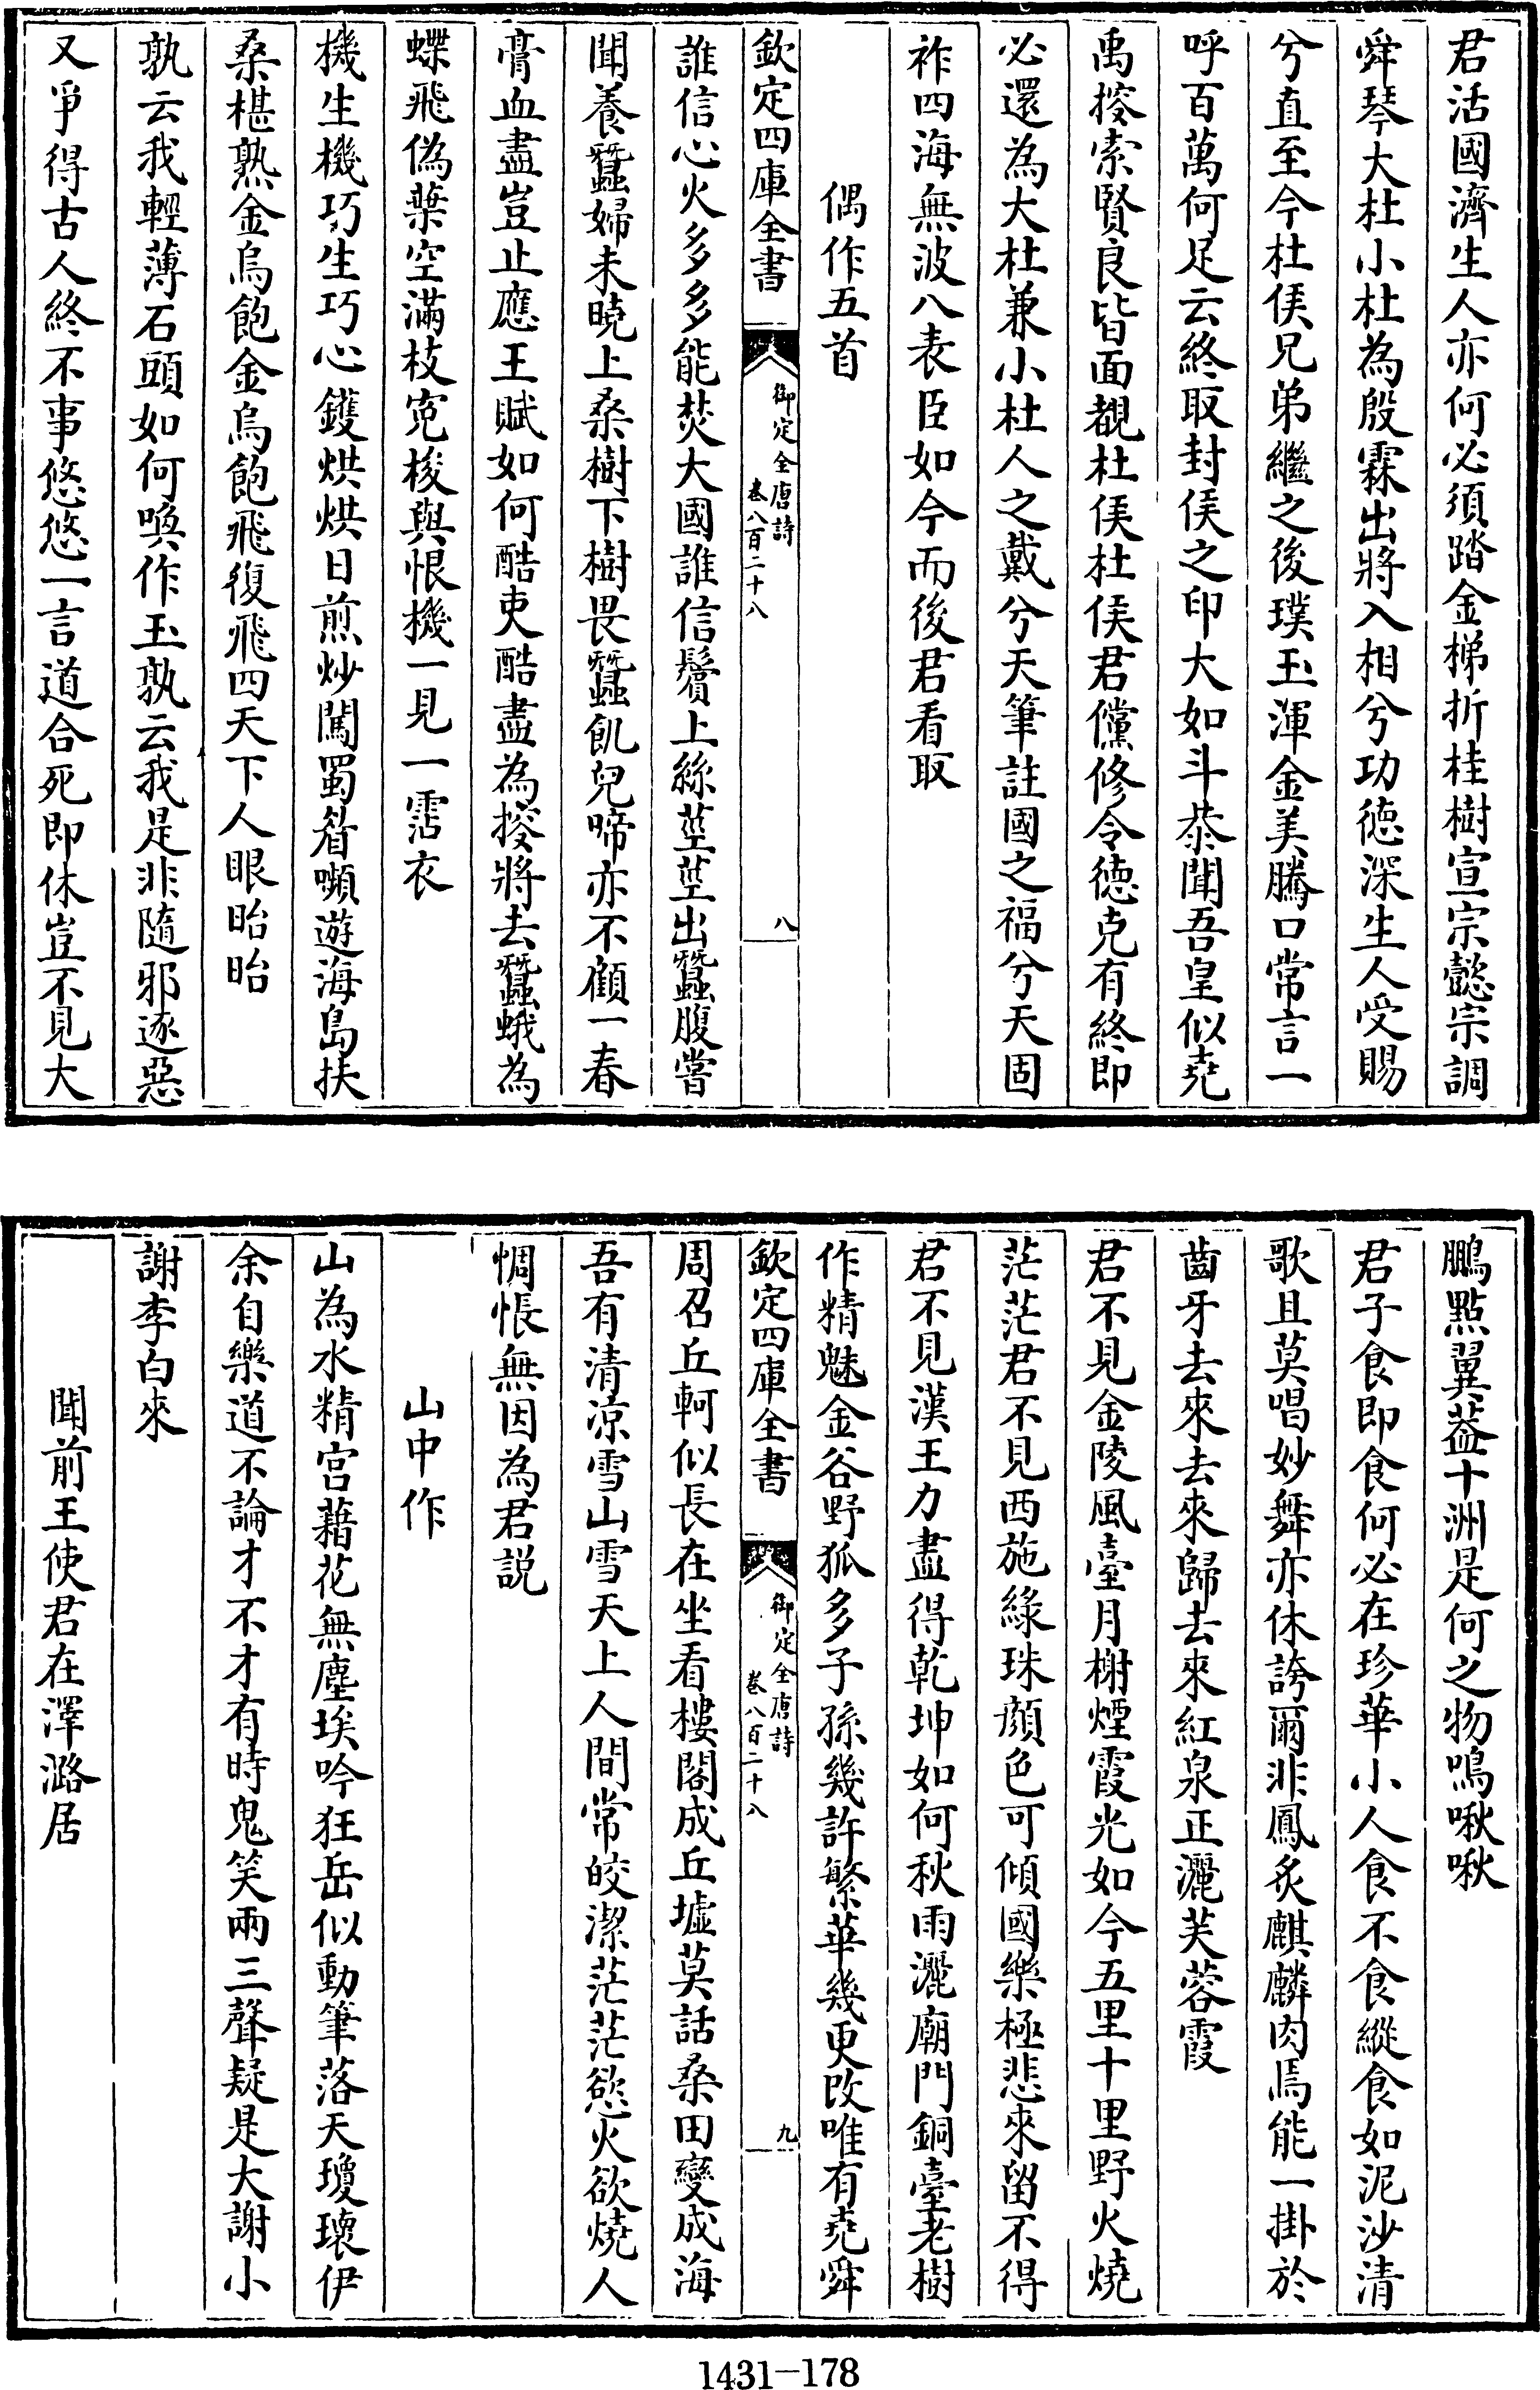 君活國濟生人亦何必須踏金梯折桂樹宣宗懿宗調
舜琴大杜小杜為殷霖出將入相兮功徳深生人受賜
兮直至今杜侯兄弟繼之後璞玉渾金美騰口常言一
呼百萬何足云終取封侯之印大如斗恭聞吾皇似堯
禹搜索賢良皆面覩杜侯杜侯君儻修令徳克有終即
必還為大杜兼小杜人之戴兮天筆註國之福兮天固
祚四海無波八表臣如今而後君看取
偶作五首
欽定四庫全書
御定全唐詩
卷八百二十八
八
誰信心火多多能焚大國誰信鬢上絲莖莖出蠶腹嘗
聞養蠶婦未曉上桑樹下樹畏蠶飢兒啼亦不顧一春
膏血盡豈止應王賦如何酷吏酷盡為搜將去蠶蛾為
蝶飛偽葉空滿枝寃梭與恨機一見一霑衣
機生機巧生巧心鑊烘烘日煎炒闖蜀眢嚬遊海島扶
桑椹熟金烏飽金烏飽飛復飛四天下人眼眙眙
孰云我輕薄石頭如何喚作玉孰云我是非隨邪逐惡
又爭得古人終不事悠悠一言道合死即休豈不見大
鵬點翼葢十洲是何之物鳴啾啾
君子食即食何必在珍華小人食不食縱食如泥沙清
歌且莫唱妙舞亦休誇爾非鳳炙麒麟肉焉能一掛於
齒牙去來去來歸去來紅泉正灑芙蓉霞
君不見金陵風臺月榭煙霞光如今五里十里野火燒
茫茫君不見西施緑珠顔色可傾國樂極悲來留不得
君不見漢王力盡得乾坤如何秋雨灑廟門銅臺老樹
作精魅金谷野狐多子孫幾許繁華幾更改唯有堯舜
欽定四庫全書
御定全唐詩
卷八百二十八
九
周召丘軻似長在坐看樓閣成丘墟莫話桑田變成海
吾有清凉雪山雪天上人間常皎潔茫茫慾火欲燒人
惆悵無因為君説
山中作
山為水精宮藉花無塵埃吟狂岳似動筆落天瓊瓌伊
余自樂道不論才不才有時鬼笑兩三聲疑是大謝小
謝李白來
聞前王使君在澤潞居
1431-178